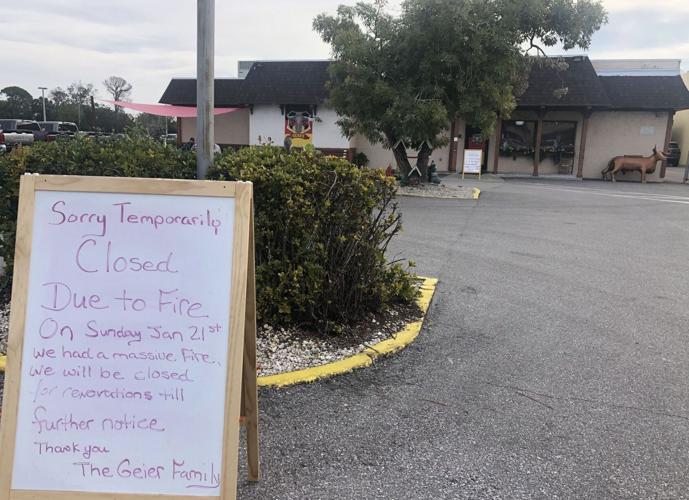 Sorry Temporarily
Closed
Due to Fire
On Sunday Jan 21st
we had a massive Fire,
we will be closed
for renovations till
further notice
Thank you
The Geier Family